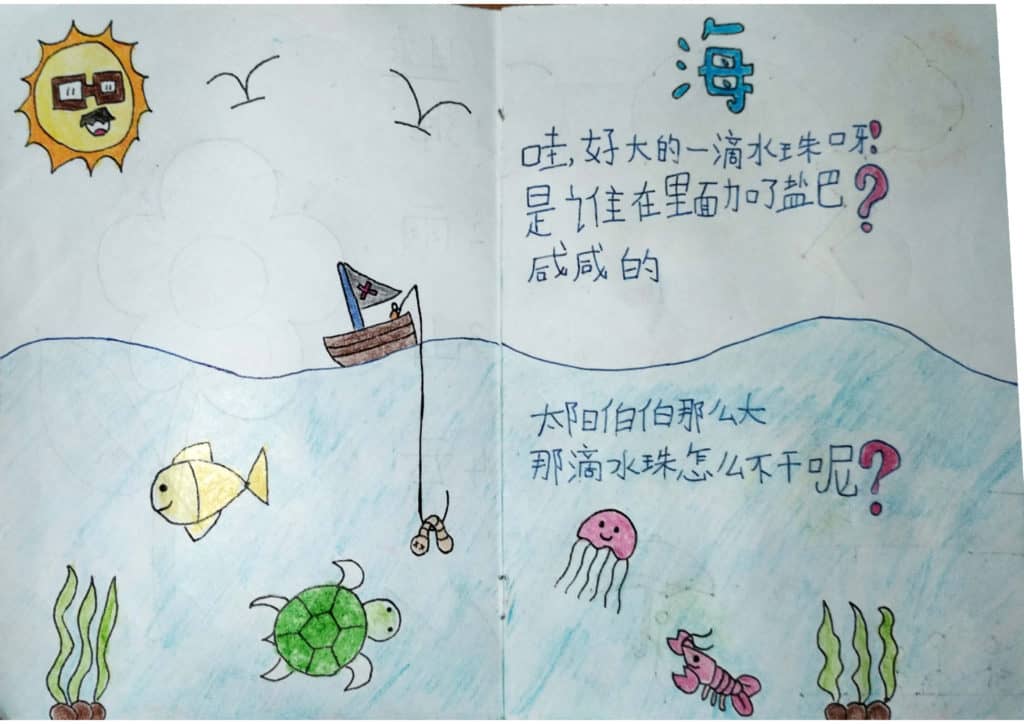 海
哇,好大的一滴水珠呀!
是谁在里面加了盐巴?
咸咸的
太阳伯伯那么大
那滴水珠怎么不干呢?